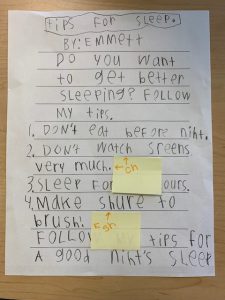 tips for sleep.
By: Emmett
Do you want
to get better
sleeping? Follow
my tips.
1. Don't eat before niht.
2. Don't watch sreens
very much. ←ch
3. Sleep for ours.
4. Make shure to
brush! ←sh
Follow my tips for
A good niht's sleep